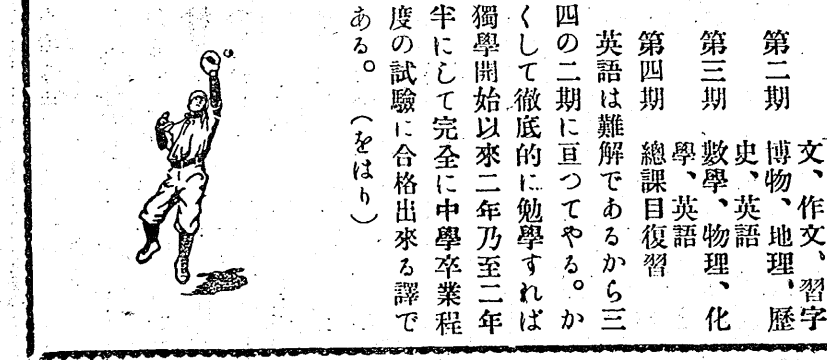 文、作文、習字
第二期　博物、地理、歷
史、英語
第三期　數學、物理、化
學、英語
第四期　總課目復習
英語は難解であるから三
四の二期に亘つてやる。か
くして徹底的に勉學すれば
獨學開始以來二年乃至二年
半にして完全に中學卒業程
度の試驗に合格出來る譯で
ある。　（をはり）